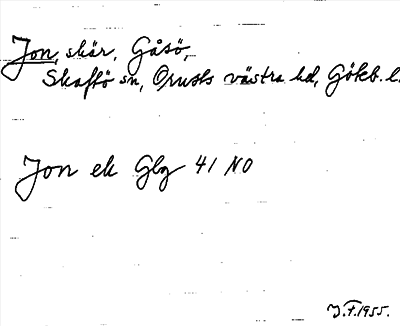 Jon, skär, Gåsö,
Skaftö sn, Orusts västra hd, Gökb. l.
Jon ek Gbg 41 NO
J.F. 1955.